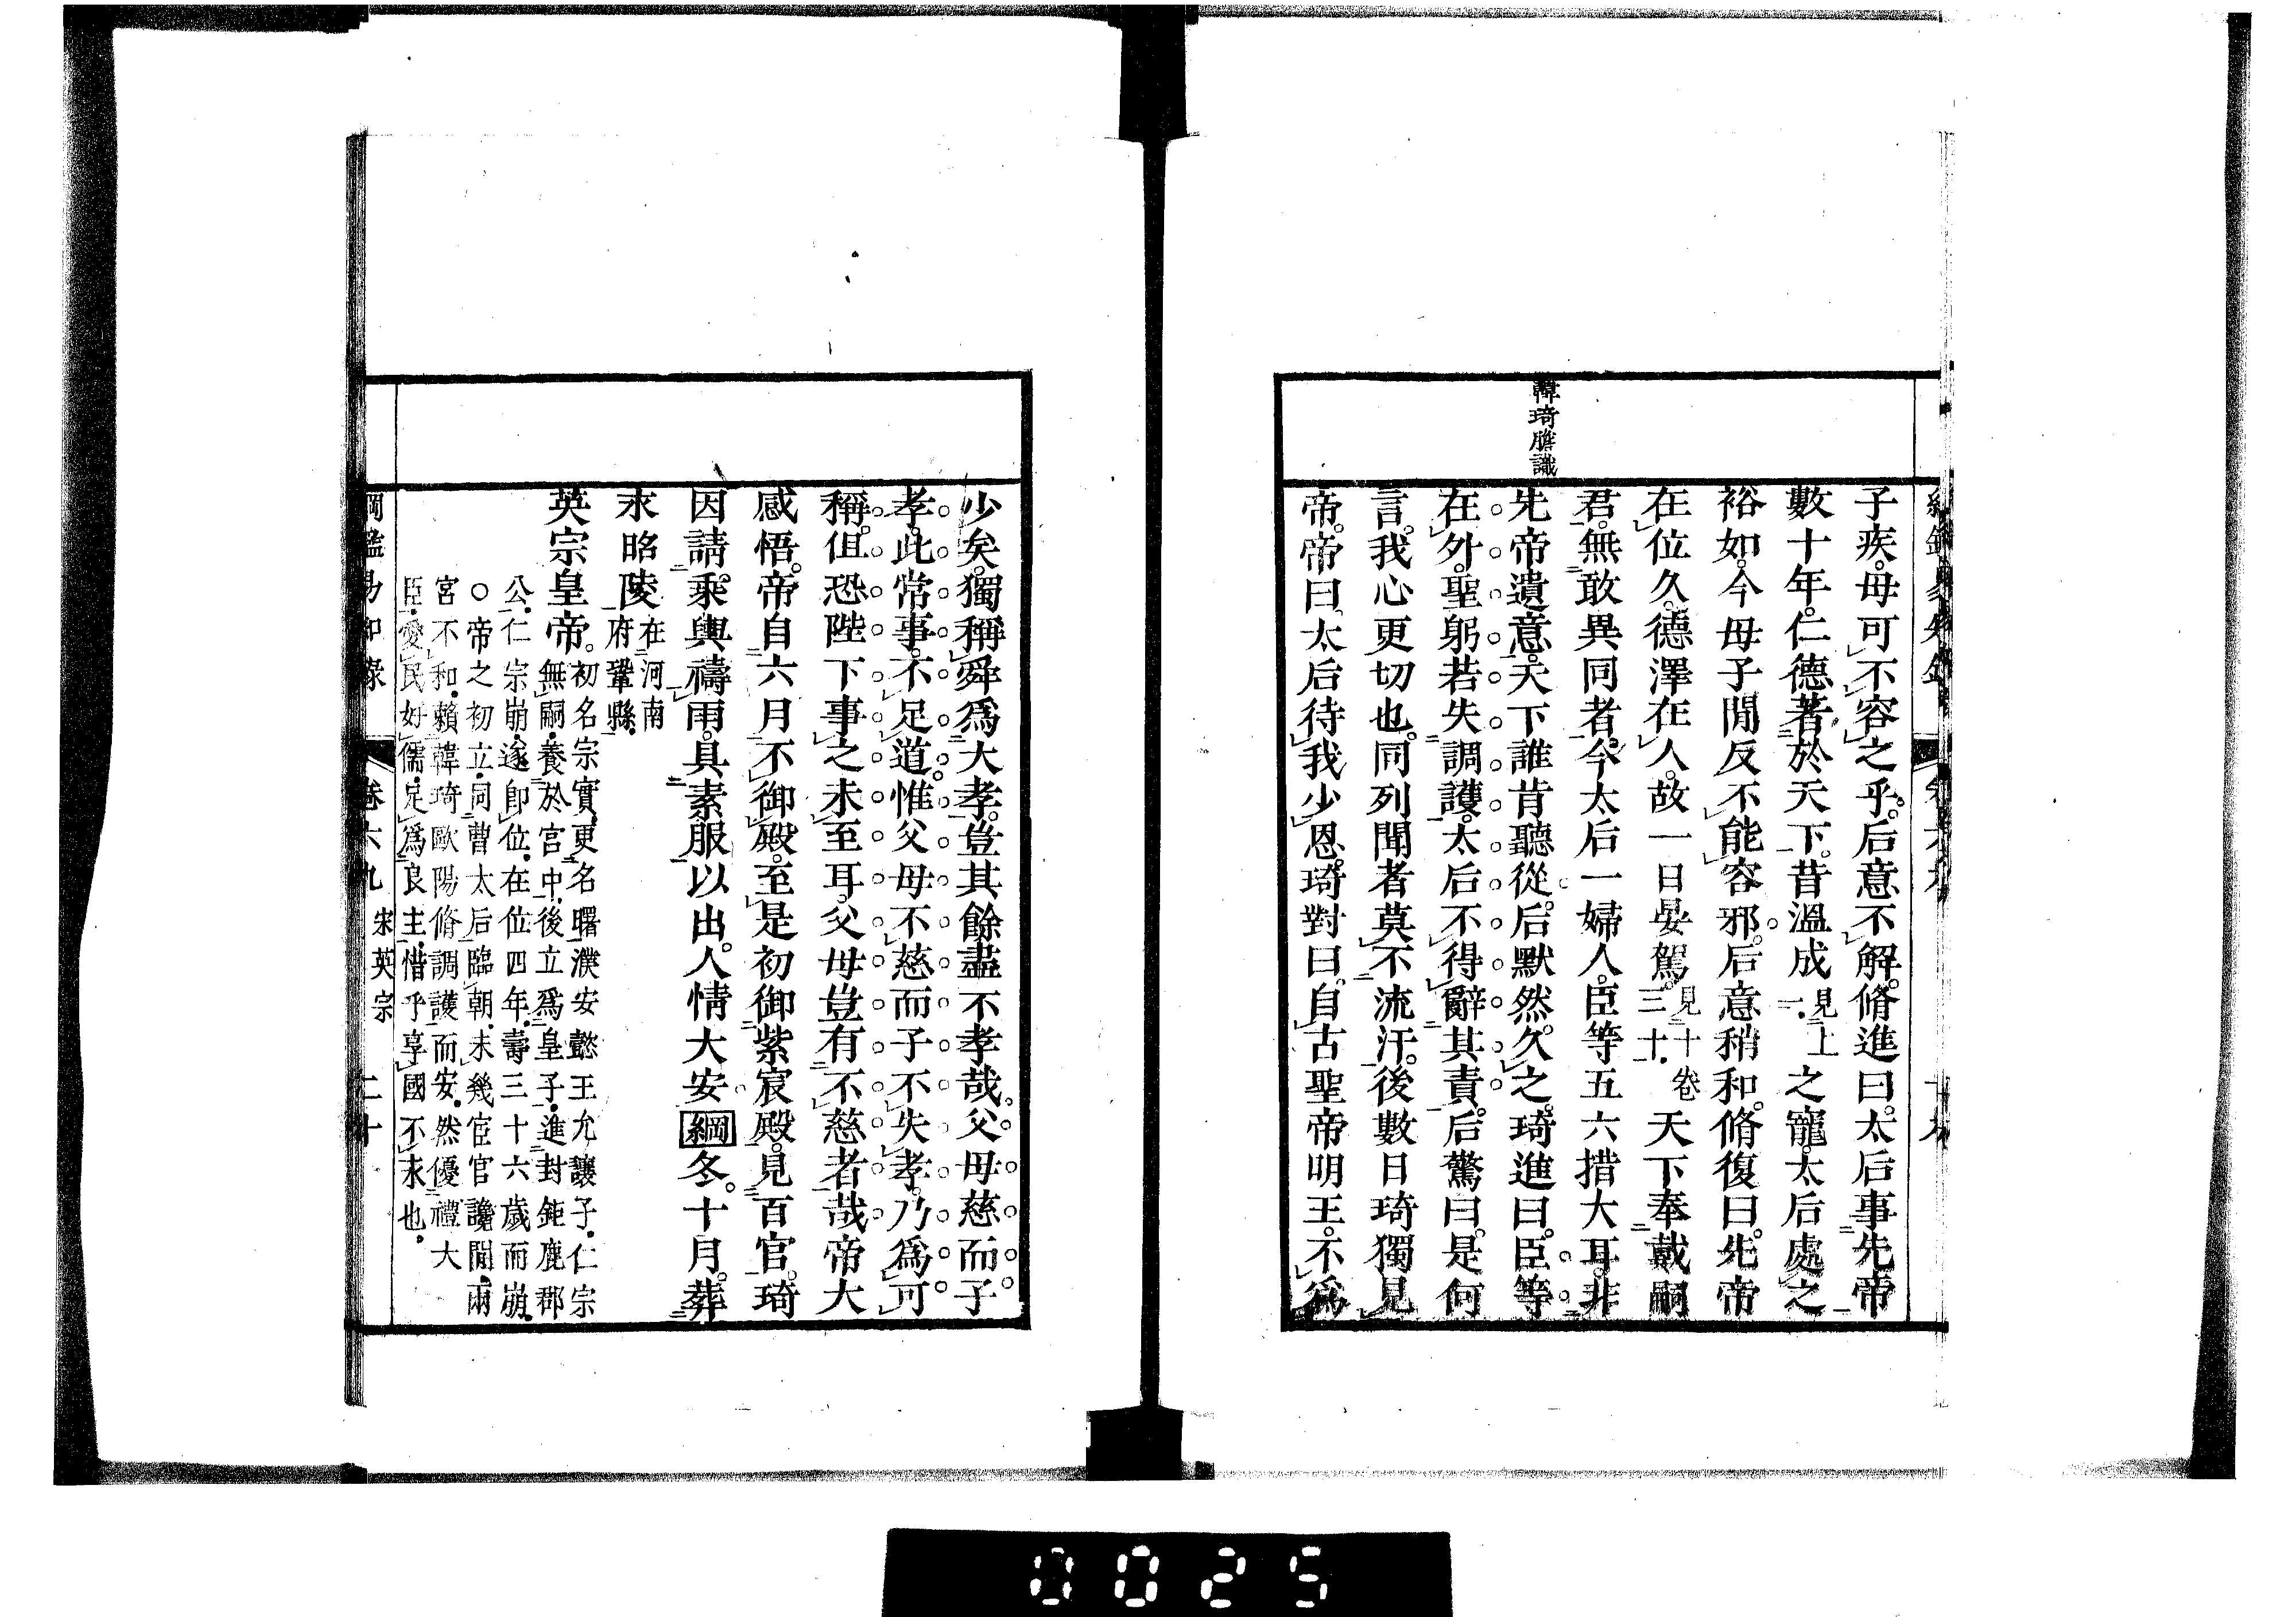 韓琦膽識
子疾。母可不容之乎。后意不解。脩進曰。太后事先帝
數十年。仁德著於天下。昔溫成見上一。之寵。太后處之
裕如。今母子閒反不能容邪。后意稍和。脩復曰。先帝
在位久。德澤在人。故一日晏駕。見十卷三十。天下奉戴嗣
君。無敢異同者。今太后一婦人。臣等五六措大耳。非
先帝遺意。天下誰肯聽從。后默然。久之。琦進曰。臣等
在外。聖躬若失調護。太后不得辭其責。后驚曰。是何
言。我心更切也。同列聞者莫不流汗。後數日琦獨見
帝。帝曰。太后待我少恩。琦對曰。自古聖帝明王。不爲
少矣。獨稱舜爲大孝。豈其餘盡不孝哉。父母慈而子
孝。此常事。不足道。惟父母不慈而子不失孝。乃爲可
稱。但恐陛下事之未至耳。父母豈有不慈者哉。帝大
感悟。帝自六月不御殿。至是初御紫宸殿。見百官。琦
因請。乘輿禱雨。具素服以出。人情大安綱冬。十月。葬
永昭陵在河南府鞏縣。
英宗皇帝。初名宗實。更名曙。濮安懿王允讓子。仁宗
無嗣。養於宮中。後立爲皇子。進封鉅鹿郡
公。仁宗崩。遂卽位。在位四年。壽三十六歲而崩。
○帝之初立。同曹太后臨朝。未幾宦官讒閒。兩
宮不和。賴韓琦歐陽脩調護而安。然優禮大
臣。愛民好儒。足爲良主。惜乎享國不永也。
綱鑑易知錄 卷六九 宋英宗 二十